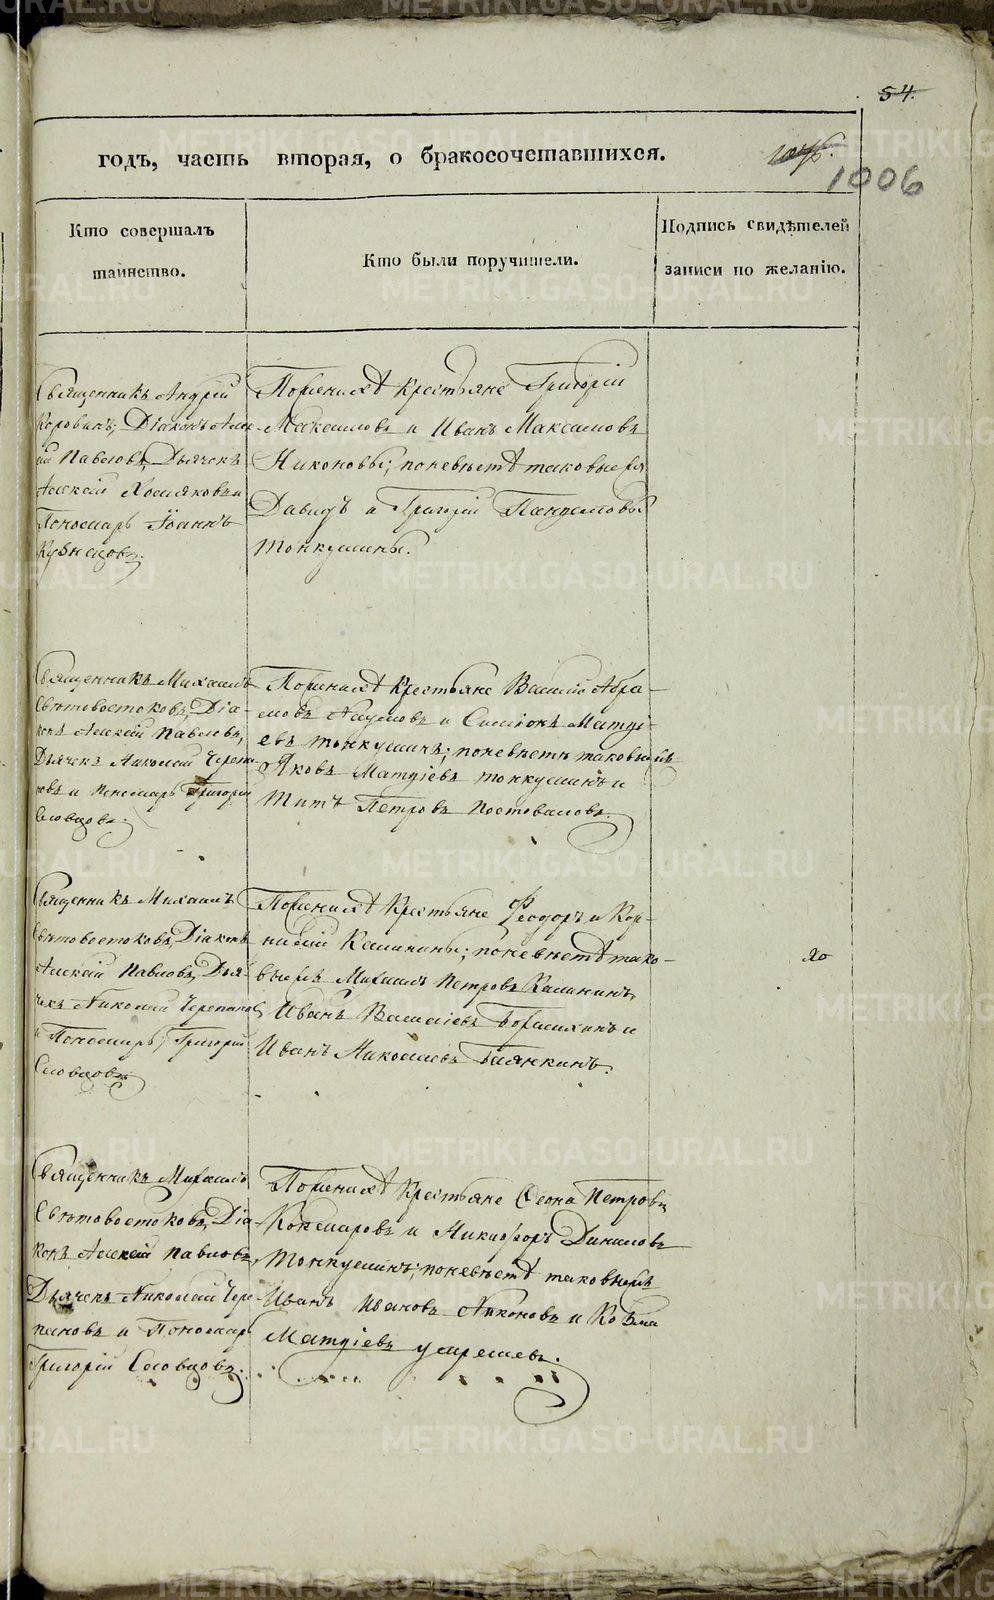 54.
годъ, часть вторая, о бракосочетавшихся.
1006
Кто совершалъ
таинство.
Кто были поручители.
Подпись свидѣтелей
записи по желанію.
Священникъ Андрей
Коровинъ; Діаконъ Алек
ѣй Павловъ, Дьячекъ
Алексѣй Хомяковъ и
Пономарь Іоаннъ
Кузнецовъ.
По женихѣ Крестьяне Григорій
Максимовъ и Иванъ Максимовъ
Никоновы; по невѣстѣ таковыежъ
Давидъ и Григорій
Тонкушины.
Священникъ Михаилъ
Свѣтовостоковъ, Діа-
конъ Алексѣй Павловъ,
Дьячекъ Николай Черепа
новъ и Пономарь Григорій
Словцовъ.
По женихѣ Крестьяне Василій Абра-
мовъ Наумовъ и Симіонъ Матѳі-
евъ Тонкушинъ; по невѣстѣ таковыежъ
Яковъ Матѳіевъ Тонкушинъ и
Титъ Петровъ Постоваловъ.
Священникъ Михаилъ
Свѣтовостоковъ, Діаконъ
Алексѣй Павловъ, Дья-
чекъ Николай Черепановъ
и Пономарь Григорій
Словцовъ.
По женихѣ Крестьяне Феодоръ и Кор-
нилій Калинины; по невѣстѣ тако-
выежъ Михаилъ Петровъ Калининъ,
Иванъ Василіевъ и
Иванъ Николаевъ
Священникъ Михаилъ
Свѣтовостоковъ, Діа-
конъ Алексѣй Павловъ,
Дьячекъ Николай Чере
пановъ и Пономарь
Григорій Словцовъ.
По женихѣ Крестьяне Леона Петровъ
Кокшаровъ и Никифоръ Даниловъ
Тонкушинъ; по невѣстѣ таковыежъ
Иванъ Ивановъ Никоновъ и Козма
Матѳіевъ
METRIKI.GASO-URAL.RU